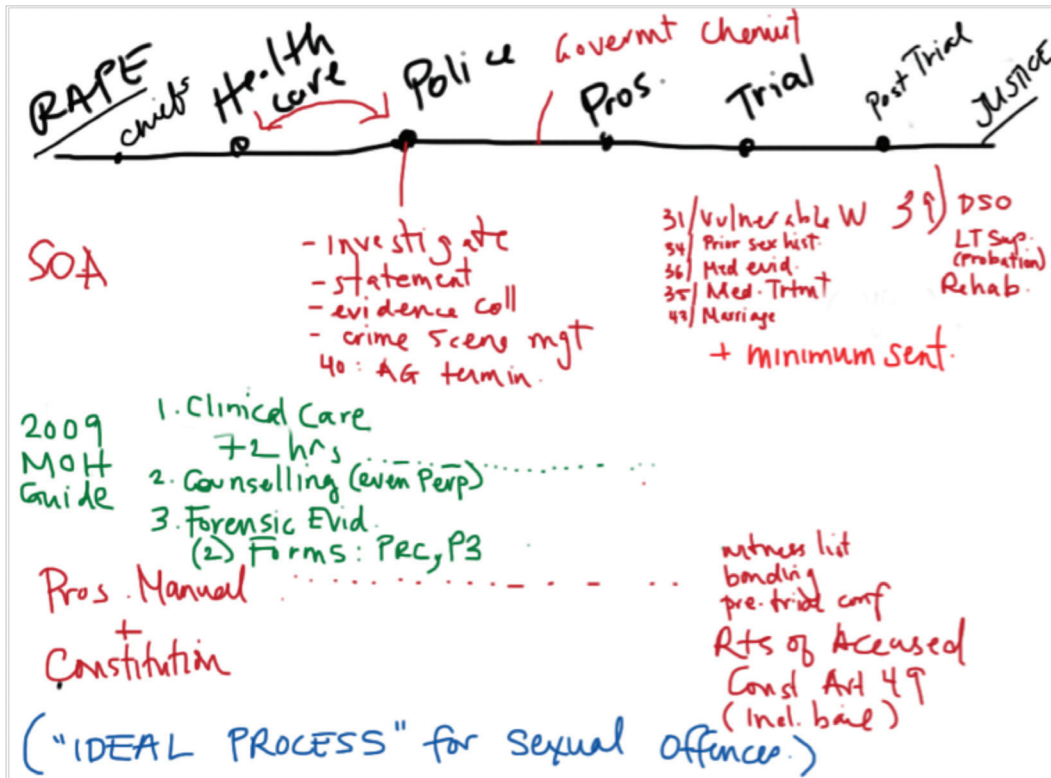 Governmt Chemist
RAPE
chiefs
Health
care
Police
Pros.
Trial
Post Trial
JUSTICE
SOA
- investigate
- statement
- evidence coll
- crime scene mgt
40: AG termin.
31/ Vulnerable W
34/ Prior sex hist.
36/ Med evid.
35/ Med. Trtmt
43/ Marriage
+ minimum sent.
39) DSO
LT Sup.
(Probation)
Rehab.
2009
MOH
Guide
1. Clinical Care
72 hrs
2. Counselling (even Perp)
3. Forensic Evid.
(2) Forms: PRC, P3
Pros. Manual
+
Constitution
witness list
bonding
pre-trial conf
Rts of Accused
Const Art 49
(Incl. bail)
("IDEAL PROCESS" for sexual offences.)